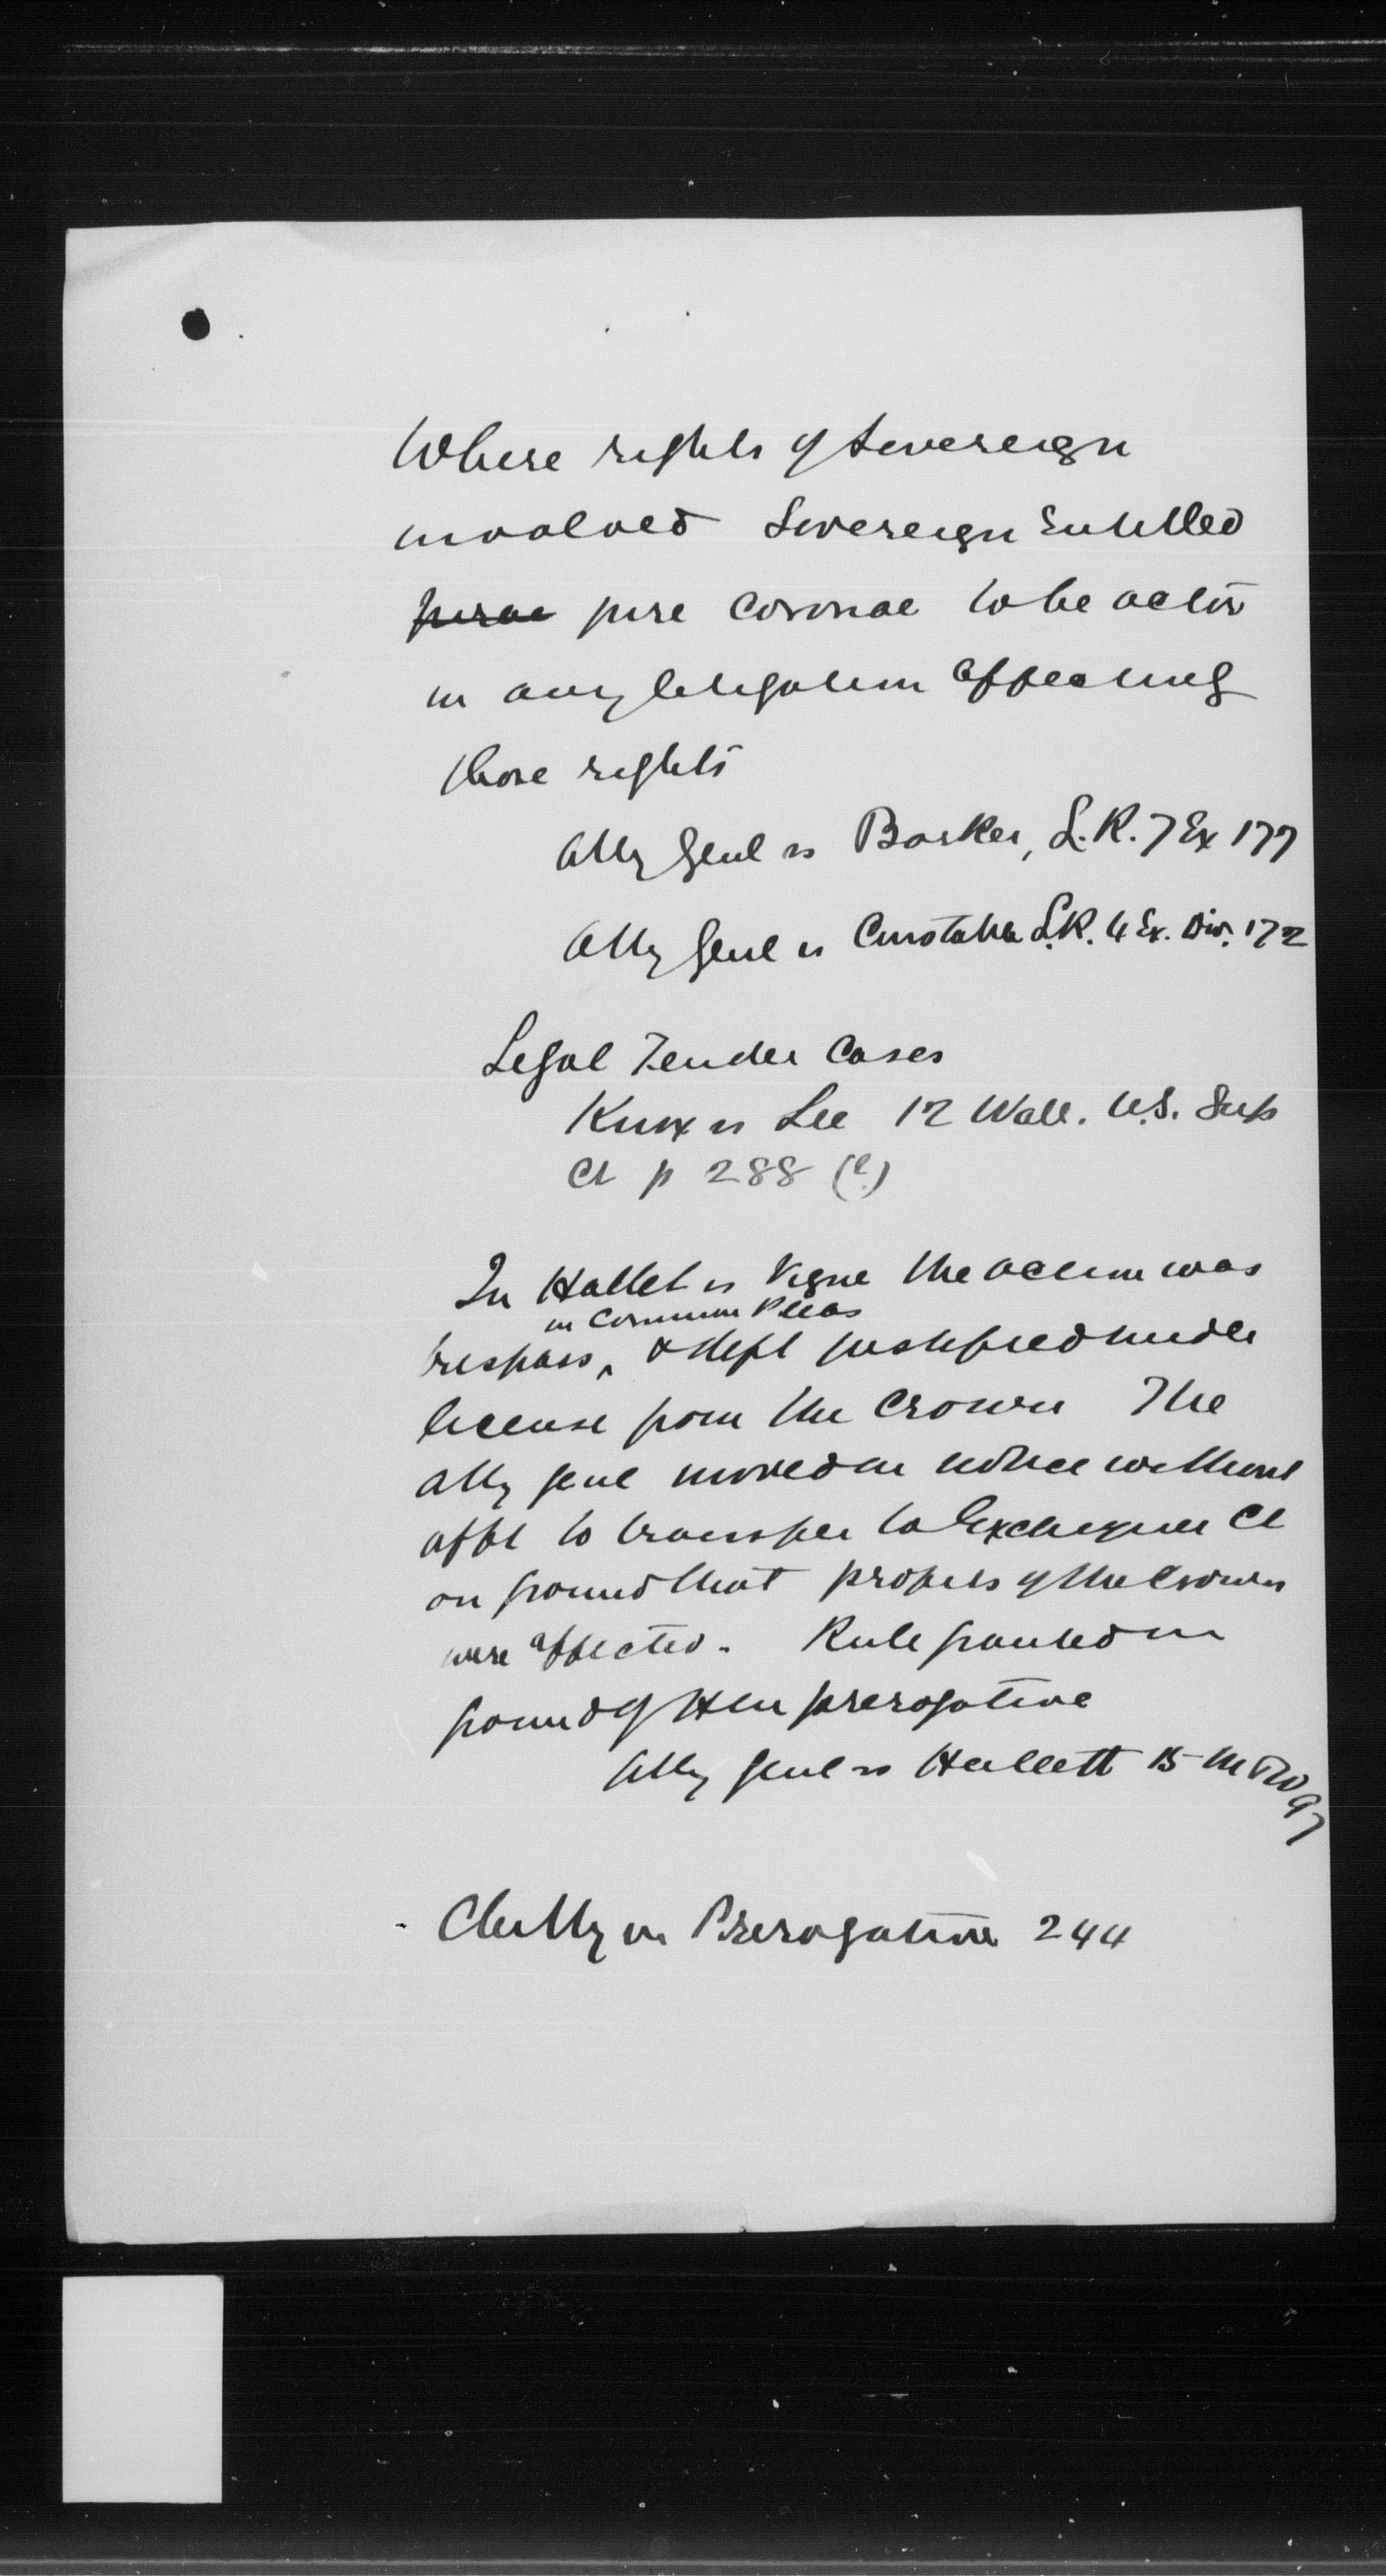 Where rights of Sovereign
involved Sovereign Entitled
jure coronae to be actor
in any litigation affecting
those rights
Atty Genl vs Barker, L.R. 7 Ex 177
Atty Genl vs Constable L.R. 4 Ex. Div. 172
Legal Tender Cases
Knox vs Lee 12 Wall. U.S. Sup
Ct p 288 (?)
In Hallet vs Vigne the action was
in Common Pleas
trespass, & deft justified under
license from the Crown The
Atty genl moved on notice without
afft to transfer to Exchequer Ct
on ground that profits of the Crown
were affected. Rule granted on
ground of prerogative
Atty genl vs Hallett 15 M & W 97
Chitty on Prerogative 244